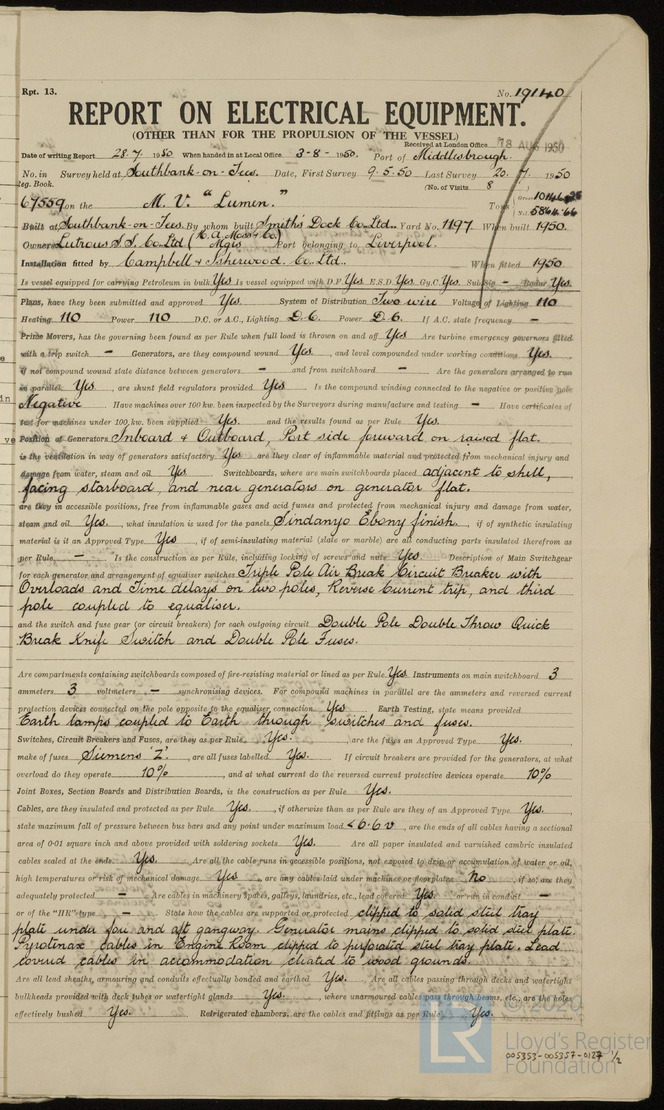 Rpt. 13. No. 19140
REPORT ON ELECTRICAL EQUIPMENT.
(OTHER THAN FOR THE PROPULSION OF THE VESSEL)
Received at London Office 18 AUG 1950
Date of writing Report 28.7 1950 When handed in at Local Office 3-8- 1950. Port of Middlesbrough.
No. in Survey held at Southbank-on-Tees. Date, First Survey 9.5.50 Last Survey 20.7.1950
Reg. Book. (No. of Visits 8)
67559 on the M.V. "Lumen." Tons
Built at Southbank-on-Tees. By whom built Smith's Dock Co. Ltd.. Yard No. 1197. When built 1950.
Owners Lutrous S.S. Co. Ltd (H.A. Moss & Co. Mgrs Port belonging to Liverpool.
Installation fitted by Campbell & Isherwood. Co. Ltd. When fitted 1950
Is vessel equipped for carrying Petroleum in bulk Yes Is vessel equipped with D.F. Yes E.S.D. Yes Gy.C. Yes Sub.Sig — Radar Yes.
Plans, have they been submitted and approved Yes. System of Distribution Two wire Voltage of Lighting 110
Heating 110 Power 110 D.C. or A.C., Lighting D.C. Power D.C. If A.C. state frequency —
Prime Movers, has the governing been found as per Rule when full load is thrown on and off Yes Are turbine emergency governors fitted
with a trip switch — Generators, are they compound wound Yes, and level compounded under working conditions Yes.
if not compound wound state distance between generators — and from switchboard — Are the generators arranged to run
in parallel Yes, are shunt field regulators provided Yes Is the compound winding connected to the negative or positive pole
Negative Have machines over 100 kw. been inspected by the Surveyors during manufacture and testing — Have certificates of
test for machines under 100 kw. been supplied Yes. and the results found as per Rule Yes.
Position of Generators Inboard & Outboard, Port side forward on raised flat.
is the ventilation in way of generators satisfactory Yes are they clear of inflammable material and protected from mechanical injury and
damage from water, steam and oil Yes Switchboards, where are main switchboards placed adjacent to shell,
facing starboard, and near generators on generator flat.
are they in accessible positions, free from inflammable gases and acid fumes and protected from mechanical injury and damage from water,
steam and oil Yes., what insulation is used for the panels Sindanyo Ebony finish., if of synthetic insulating
material is it an Approved Type Yes, if of semi-insulating material (slate or marble) are all conducting parts insulated therefrom as
per Rule — Is the construction as per Rule, including locking of screws and nuts Yes Description of Main Switchgear
for each generator and arrangement of equaliser switches Triple Pole Air Break Circuit Breaker with
Overloads and Time delays on two poles, Reverse Current trip, and third
pole coupled to equaliser.
and the switch and fuse gear (or circuit breakers) for each outgoing circuit Double Pole Double Throw Quick
Break Knife Switch and Double Pole Fuses.
Are compartments containing switchboards composed of fire-resisting material or lined as per Rule Yes Instruments on main switchboard 3
ammeters 3 voltmeters — synchronising devices. For compound machines in parallel are the ammeters and reversed current
protection devices connected on the pole opposite to the equaliser connection Yes Earth Testing, state means provided
Earth lamps coupled to Earth through switches and fuses.
Switches, Circuit Breakers and Fuses, are they as per Rule Yes., are the fuses an Approved Type Yes.,
make of fuses Siemens 'Z', are all fuses labelled Yes. If circuit breakers are provided for the generators, at what
overload do they operate 10%, and at what current do the reversed current protective devices operate 10%
Joint Boxes, Section Boards and Distribution Boards, is the construction as per Rule Yes.
Cables, are they insulated and protected as per Rule Yes., if otherwise than as per Rule are they of an Approved Type Yes.,
state maximum fall of pressure between bus bars and any point under maximum load <6.6v, are the ends of all cables having a sectional
area of 0·01 square inch and above provided with soldering sockets Yes. Are all paper insulated and varnished cambric insulated
cables sealed at the ends Yes. Are all the cable runs in accessible positions, not exposed to drip or accumulation of water or oil,
high temperatures or risk of mechanical damage Yes, are any cables laid under machines or floorplates No, if so, are they
adequately protected — Are cables in machinery spaces, galleys, laundries, etc., lead covered Yes or run in conduit —
or of the "HR" type — State how the cables are supported or protected clipped to solid steel tray
plate under fore and aft gangway. Generator mains clipped to solid steel plate.
Pyrotenax cables in Engine Room clipped to perforated steel tray plate. Lead
covered cables in accommodation cleated to wood grounds.
Are all lead sheaths, armouring and conduits effectually bonded and earthed Yes. Are all cables passing through decks and watertight
bulkheads provided with deck tubes or watertight glands Yes., where unarmoured cables pass through beams, etc., are the holes
effectively bushed Yes. Refrigerated chambers, are the cables and fittings as per Rule Yes.
© 2020
LR
Lloyd's Register
Foundation
005353-005357-0127 1/2